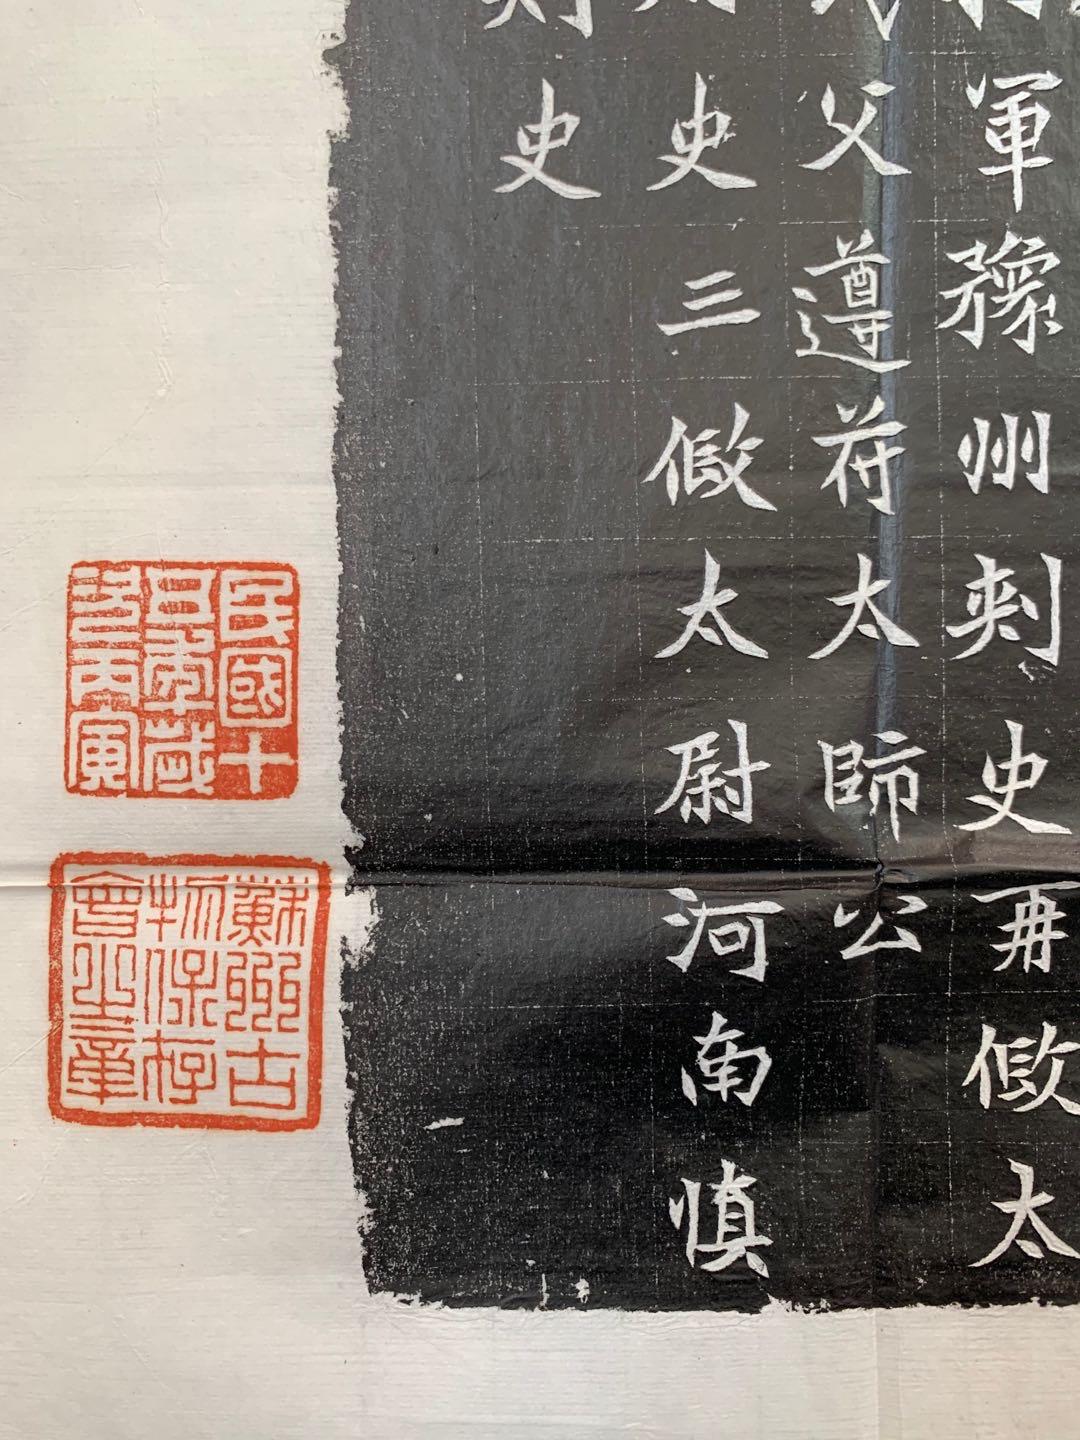 軍豫州刺史再假太
父遵苻太師公
史三假太尉河南慎
史
民國十
五年歲
在丙寅
蘇州古
物保存
會之章